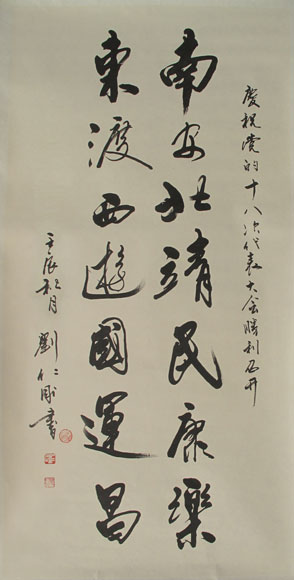 慶祝黨的十八次代表大会勝利召开
南安北靖民康樂
東渡西遊國運昌
壬辰秋月
劉仁剛書